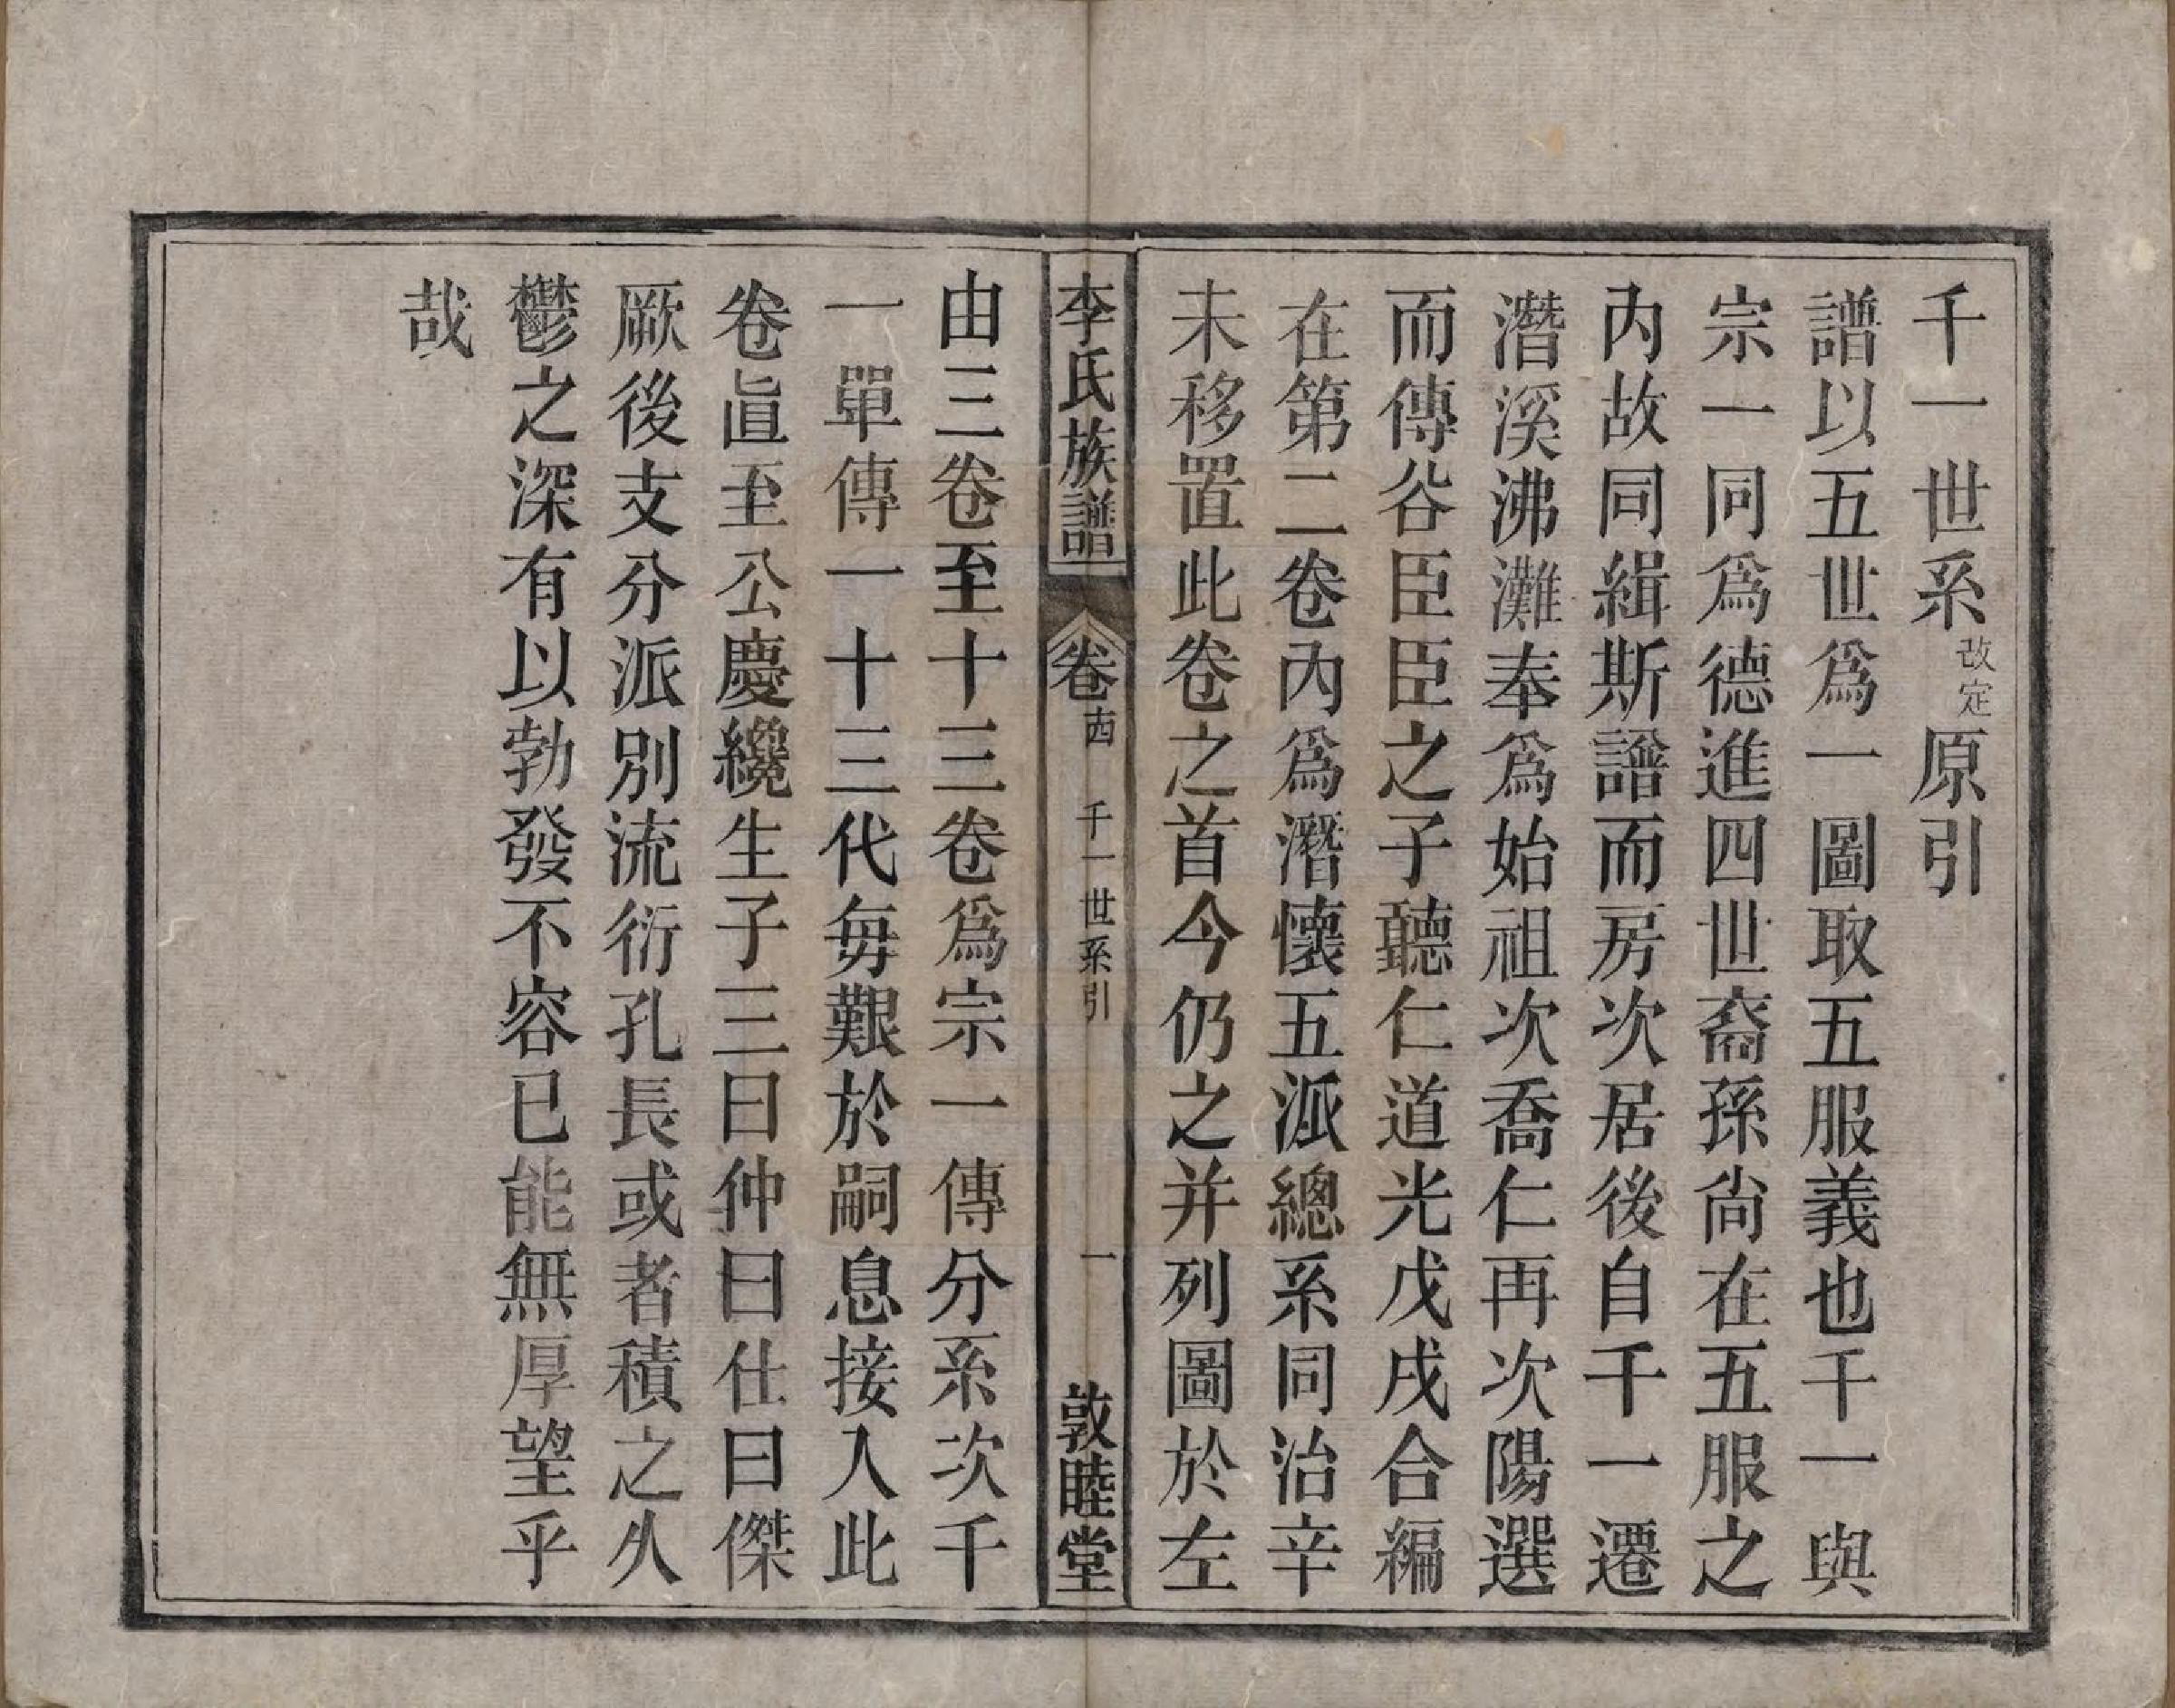 千一世系改定原引
譜以五世爲一圖取五服義也千一與
宗一同爲德進四世裔孫尙在五服之
內故同緝斯譜而房次居後自千一遷
潛溪沸灘奉爲始祖次喬仁再次陽選
而傳谷臣臣之子聽仁道光戊戌合編
在第二卷內爲潛懷五派總系同治辛
未移置此卷之首今仍之并列圖於左
李氏族譜 卷十四 千一世系引 一 敦睦堂
由三卷至十三卷爲宗一傳分系次千
一單傳一十三代每艱於嗣息接入此
卷眞至公慶纔生子三曰仲曰仕曰傑
厥後支分派別流衍孔長或者積之久
鬱之深有以勃發不容已能無厚望乎
哉